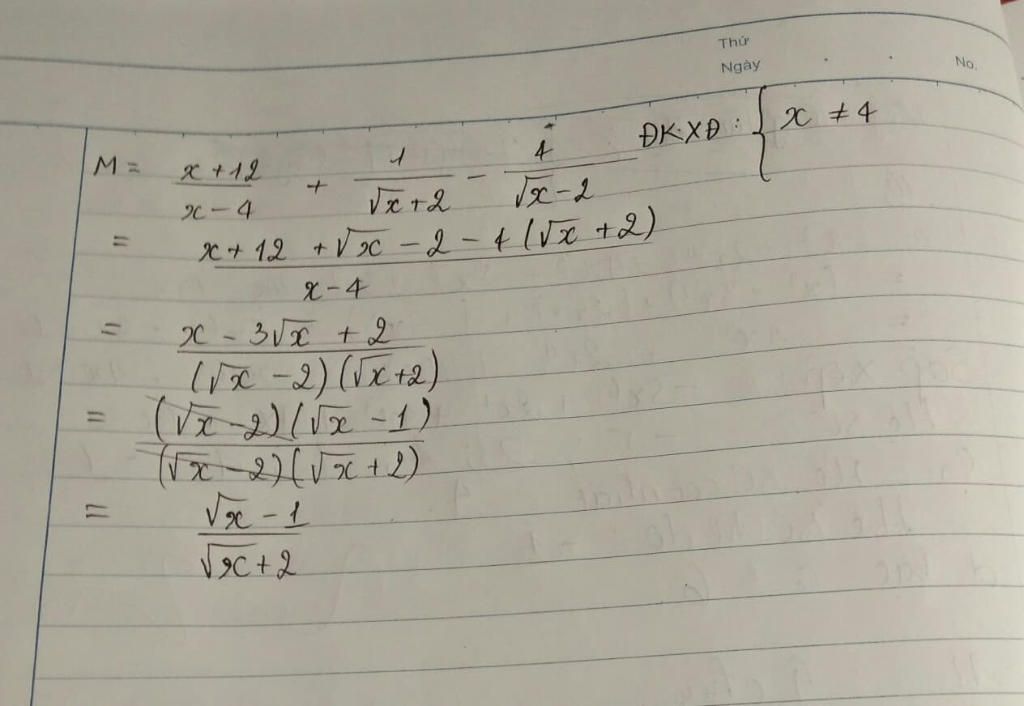 Thứ
Ngày
No.
M = \frac{x+12}{x-4} + \frac{1}{\sqrt{x}+2} - \frac{4}{\sqrt{x}-2} ĐKXĐ: { x ≠ 4
= \frac{x+12+\sqrt{x}-2-4(\sqrt{x}+2)}{x-4}
= \frac{x-3\sqrt{x}+2}{(\sqrt{x}-2)(\sqrt{x}+2)}
= \frac{(\sqrt{x}-2)(\sqrt{x}-1)}{(\sqrt{x}-2)(\sqrt{x}+2)}
= \frac{\sqrt{x}-1}{\sqrt{x}+2}